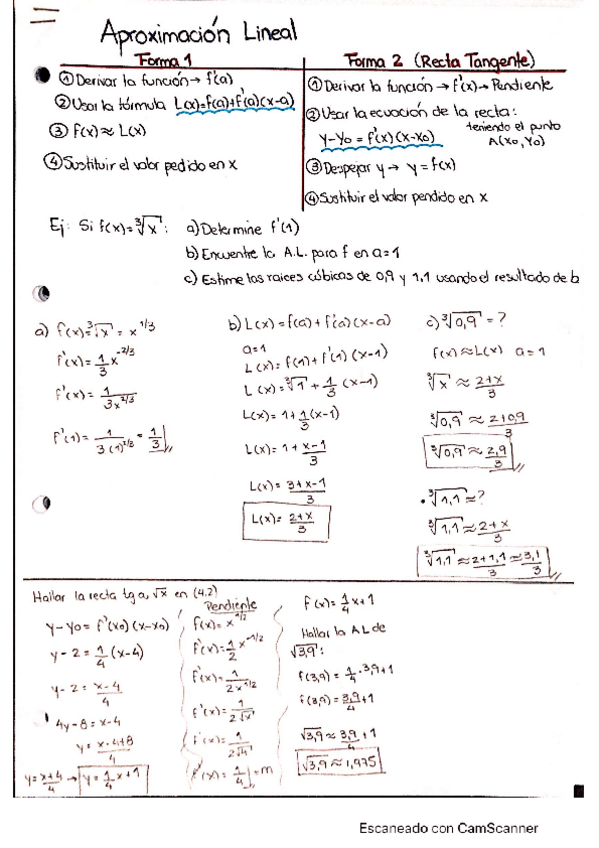 Aproximación Lineal
Forma 1
① Derivar la función → f'(a)
② Usar la fórmula L(x)=f(a)+f'(a)(x-a)
③ f(x) ≈ L(x)
④ Sustituir el valor pedido en x
Forma 2 (Recta Tangente)
① Derivar la función → f'(x) → Pendiente
② Usar la ecuación de la recta:
y-y₀ = f'(x)(x-x₀)
teniendo el punto
A(x₀, y₀)
③ Despejar y → y = f(x)
④ Sustituir el valor pendido en x
Ej: Si f(x)=∛x : a) Determine f'(1)
b) Encuentre la A.L. para f en a=1
c) Estime las raices cúbicas de 0,9 y 1,1 usando el resultado de b
a) f(x)=∛x = x^1/3
f'(x)= 1/3 x^-2/3
f'(x)= 1/3x^2/3
f'(1)= 1/3(1)^2/3 = 1/3
b) L(x)=f(a)+f'(a)(x-a)
a=1
L(x)= f(1)+f'(1)(x-1)
L(x)=∛1 + 1/3 (x-1)
L(x)= 1+ 1/3(x-1)
L(x)= 1 + x-1/3
L(x)= 3+x-1/3
L(x)= 2+x/3
c) ∛0,9 = ?
f(x)≈L(x) a=1
∛x ≈ 2+x/3
∛0,9 ≈ 2+0,9/3
∛0,9 ≈ 2,9/3
• ∛1,1 ≈?
∛1,1 ≈ 2+x/3
∛1,1 ≈ 2+1,1/3 ≈ 3,1/3
Hallar la recta tg a, √x en (4,2)
y-y₀= f'(x₀)(x-x₀)
y-2= 1/4 (x-4)
y-2= x-4/4
4y-8= x-4
y= x-4+8/4
y= x+4/4 → y= 1/4 x+1
Pendiente
f(x)= x^1/2
f'(x)= 1/2 x^-1/2
f'(x)= 1/2x^1/2
f'(x)= 1/2√x
f'(x)= 1/2√4
f'(x)= 1/4 = m
f(x)= 1/4 x+1
Hallar la AL de
√3,9 :
f(3,9)= 1/4 · 3,9+1
f(3,9)= 3,9/4 +1
√3,9 ≈ 3,9/4 +1
√3,9 ≈ 1,975
Escaneado con CamScanner